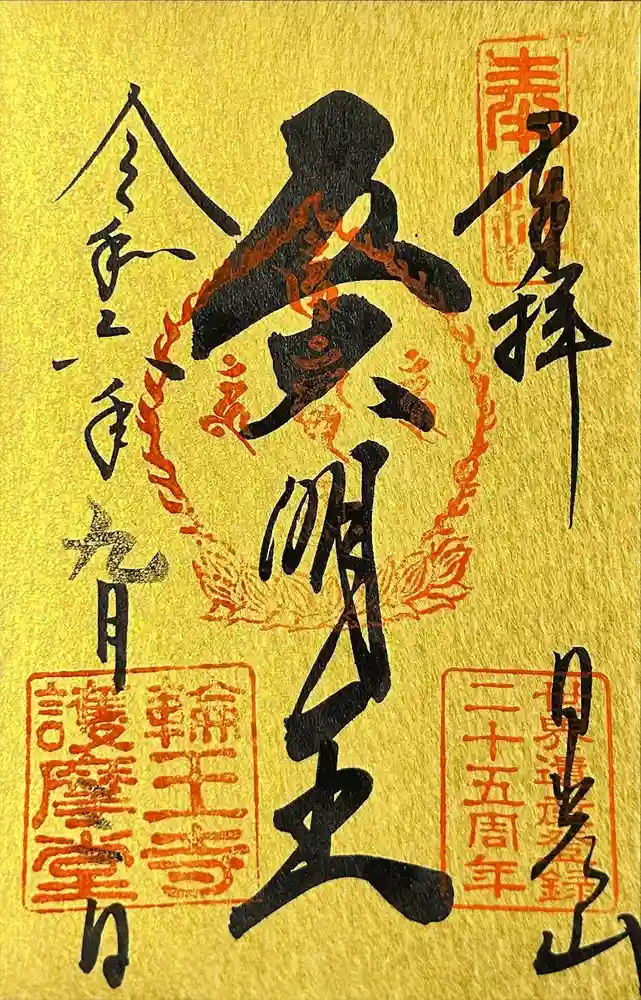 奉拝
日光山
五大明王
令和六年九月 日
世界遺産登録
二十五周年
輪王寺
護摩堂